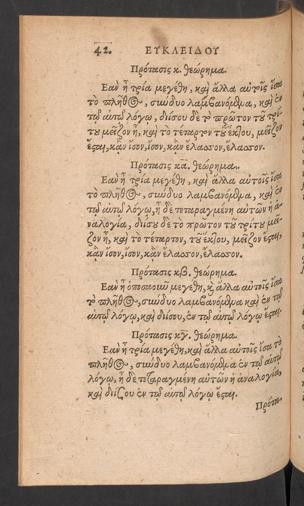 42. ΕΥΚΛΕΙΔΟΥ
Πρότασις κ. θεώρημα.
Εαν ᾖ τρία μεγέθη, καὶ ἄλλα αὐτοῖς ἴσα
τὸ πλῆθος, σύνδυο λαμβανόμενα, καὶ ἐν
τῷ αὐτῷ λόγῳ, διίσου δὲ τὸ πρῶτον τοῦ τρί-
του μεῖζον ᾖ, καὶ τὸ τέταρτον τοῦ ἕκτου, μεῖζον
ἔσται, κἂν ἴσον, ἴσον, κἂν ἔλασσον, ἔλασσον.
Πρότασις κα. θεώρημα.
Εαν ᾖ τρία μεγέθη, καὶ ἄλλα αὐτοῖς ἴσα
τὸ πλῆθος, σύνδυο λαμβανόμενα, καὶ ἐν
τῷ αὐτῷ λόγῳ, ᾖ δὲ τεταραγμένη αὐτῶν ἡ ἀ-
ναλογία, διίσου δὲ τὸ πρῶτον τοῦ τρίτου μεῖ-
ζον ᾖ, καὶ τὸ τέταρτον, τοῦ ἕκτου, μεῖζον ἔσται,
κἂν ἴσον, ἴσον, κἂν ἔλασσον, ἔλασσον.
Πρότασις κβ. θεώρημα.
Εαν ᾖ ὁποσαοῦν μεγέθη, καὶ ἄλλα αὐτοῖς ἴσα
τὸ πλῆθος, σύνδυο λαμβανόμενα καὶ ἐν τῷ
αὐτῷ λόγῳ, καὶ διίσου, ἐν τῷ αὐτῷ λόγῳ ἔσται.
Πρότασις κγ. θεώρημα.
Εαν ᾖ τρία μεγέθη, καὶ ἄλλα αὐτοῖς ἴσα τὸ
πλῆθος, σύνδυο λαμβανόμενα ἐν τῷ αὐτῷ
λόγῳ, ᾖ δὲ τεταραγμένη αὐτῶν ἡ ἀναλογία,
καὶ διίσου ἐν τῷ αὐτῷ λόγῳ ἔσται.
Πρότα-